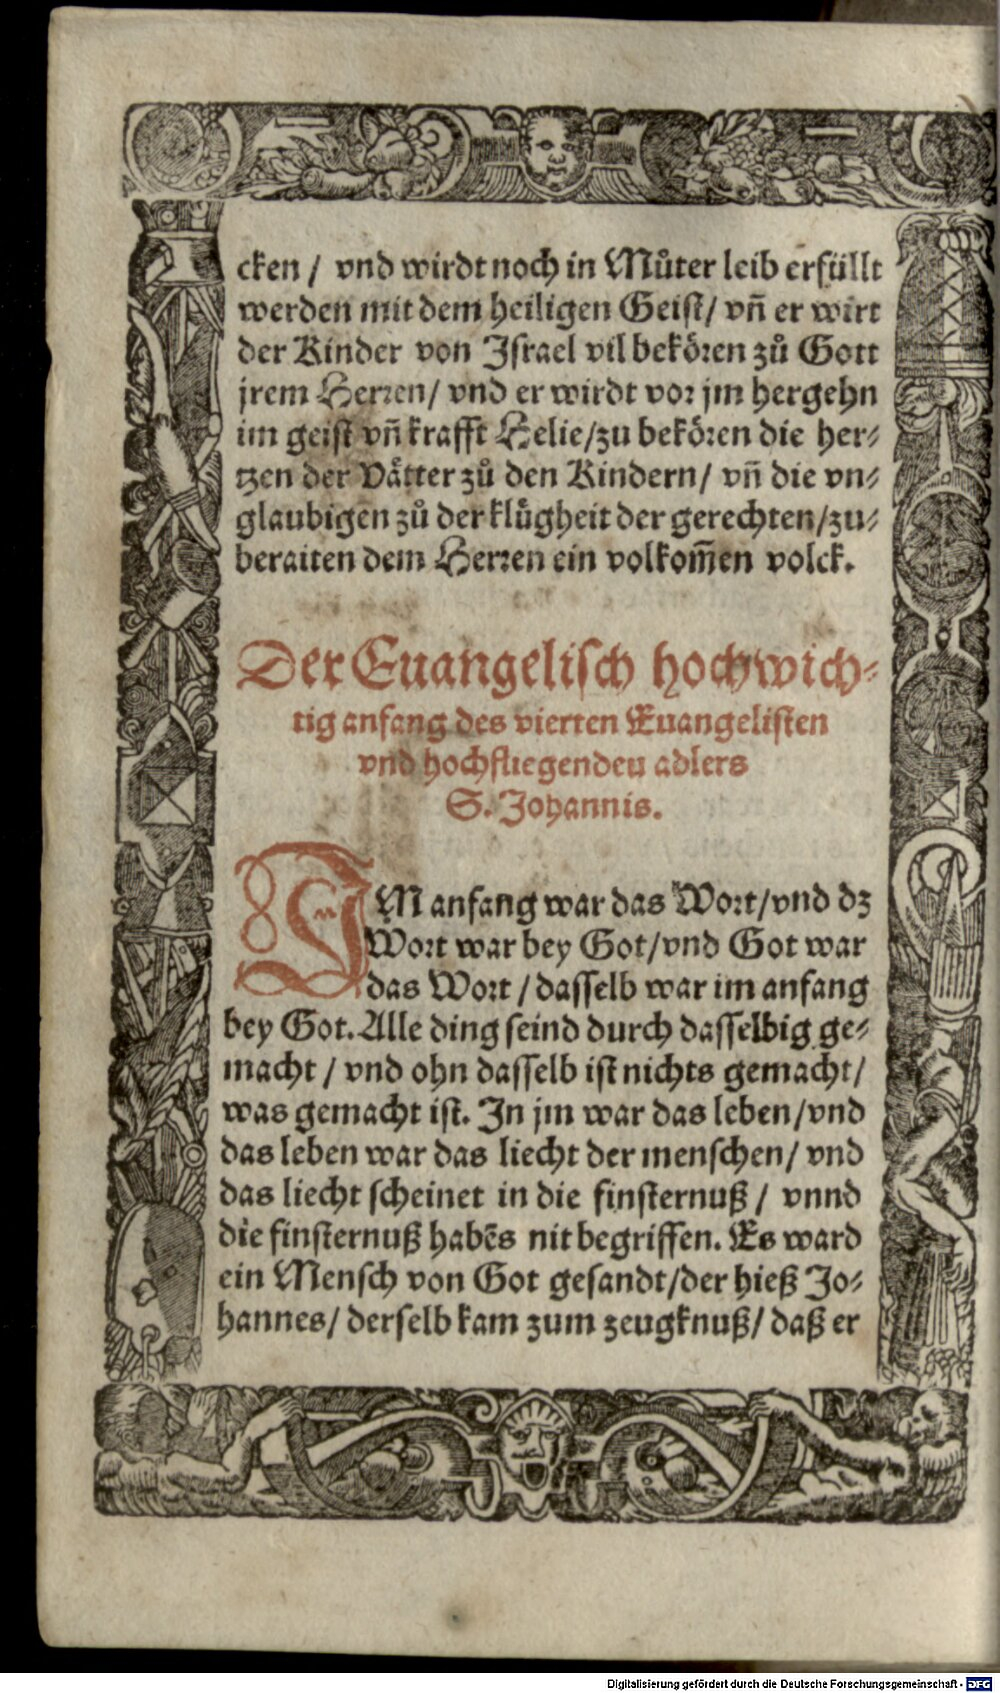 cken / vnd wirdt noch in Můter leib erfüllt
werden mit dem heiligen Geist/ vñ er wirt
der Kinder von Israel vil bekören zů Gott
jrem Herren/ vnd er wirdt vor jm hergehn
im geist vñ krafft Helie/zu bekören die her-
tzen der Vätter zů den Kindern/ vñ die vn-
glaubigen zů der klůgheit der gerechten/zu-
beraiten dem Herren ein volkom̃en volck.
Der Euangelisch hochwich-
tig anfang des vierten Euangelisten
vnd hochfliegenden adlers
S. Johannis.
IM anfang war das Wort/vnd dz
Wort war bey Got/vnd Got war
das Wort / dasselb war im anfang
bey Got. Alle ding seind durch dasselbig ge-
macht / vnd ohn dasselb ist nichts gemacht/
was gemacht ist. In jm war das leben/vnd
das leben war das liecht der menschen/ vnd
das liecht scheinet in die finsternuß / vnnd
die finsternuß habēs nit begriffen. Es ward
ein Mensch von Got gesandt/der hieß Jo-
hannes/ derselb kam zum zeugknuß/ daß er
Digitalisierung gefördert durch die Deutsche Forschungsgemeinschaft - DFG